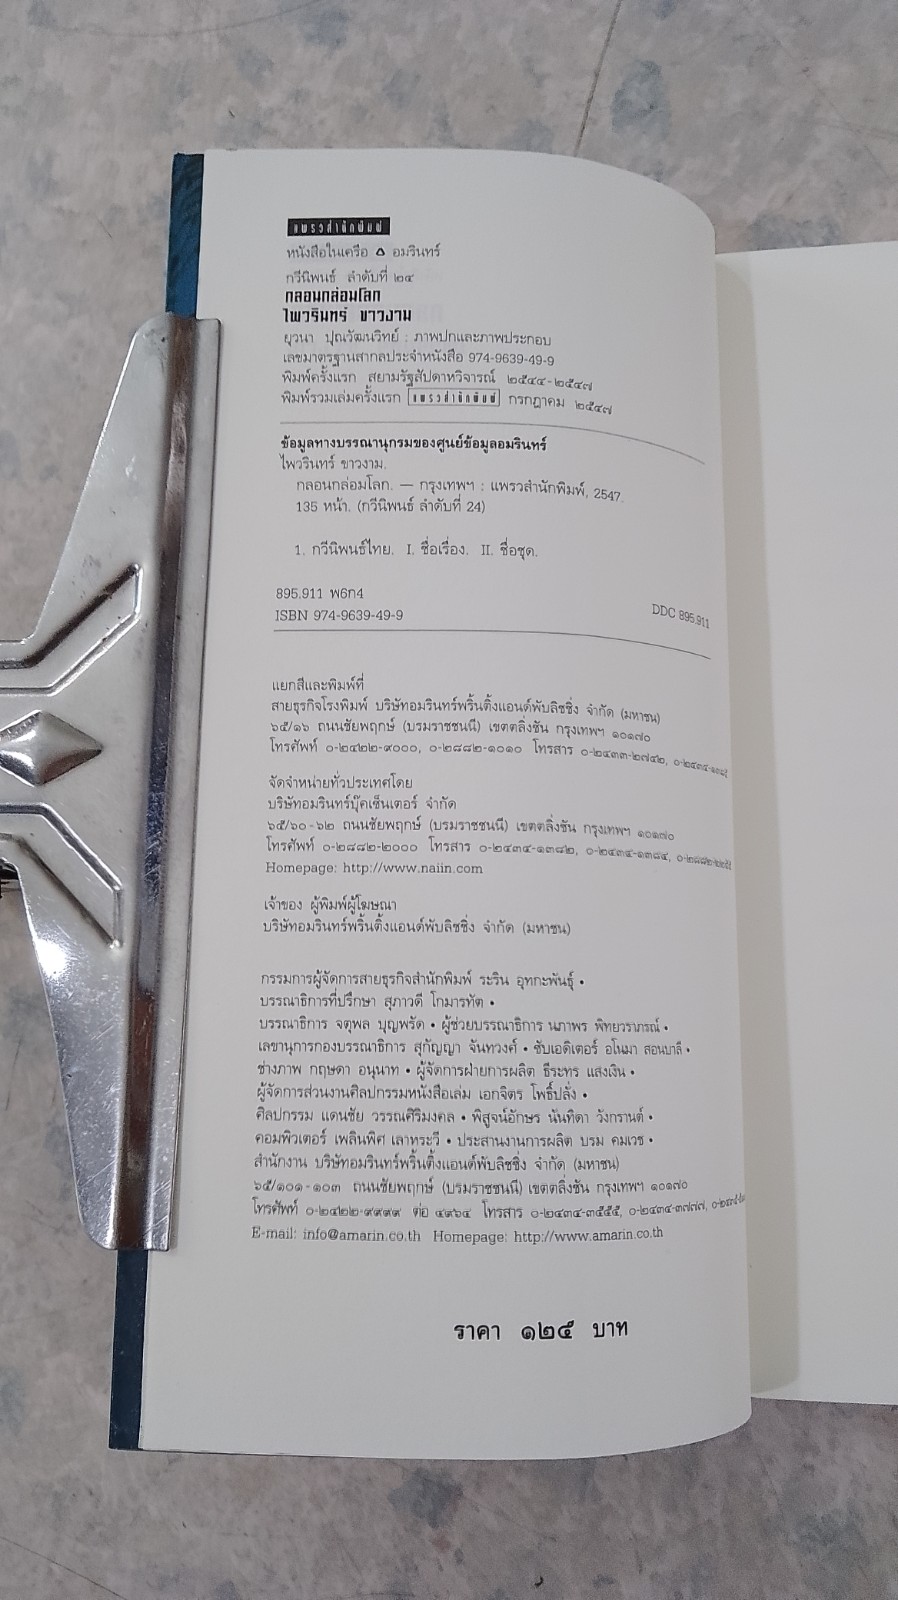 แพรวสำนักพิมพ์
หนังสือในเครือ อมรินทร์
กวีนิพนธ์ ลำดับที่ ๒๔
กลอนกล่อมโลก
ไพวรินทร์ ขาวงาม
ยุวนา ปุณวัฒนวิทย์ : ภาพปกและภาพประกอบ
เลขมาตรฐานสากลประจำหนังสือ 974-9639-49-9
พิมพ์ครั้งแรก สยามรัฐสัปดาหวิจารณ์ ๒๕๔๔-๒๕๔๗
พิมพ์รวมเล่มครั้งแรก แพรวสำนักพิมพ์ กรกฎาคม ๒๕๔๗
ข้อมูลทางบรรณานุกรมของศูนย์ข้อมูลอมรินทร์
ไพวรินทร์ ขาวงาม.
กลอนกล่อมโลก. — กรุงเทพฯ : แพรวสำนักพิมพ์, 2547.
135 หน้า. (กวีนิพนธ์ ลำดับที่ 24)
1. กวีนิพนธ์ไทย. I. ชื่อเรื่อง. II. ชื่อชุด.
895.911 พ6ก4
ISBN 974-9639-49-9 DDC 895.911
แยกสีและพิมพ์ที่
สายธุรกิจโรงพิมพ์ บริษัทอมรินทร์พริ้นติ้งแอนด์พับลิชชิ่ง จำกัด (มหาชน)
๖๕/๑๖ ถนนชัยพฤกษ์ (บรมราชชนนี) เขตตลิ่งชัน กรุงเทพฯ ๑๐๑๗๐
โทรศัพท์ ๐-๒๔๒๒-๙๐๐๐, ๐-๒๘๘๒-๑๐๑๐ โทรสาร ๐-๒๔๓๓-๒๗๔๒,
จัดจำหน่ายทั่วประเทศโดย
บริษัทอมรินทร์บุ๊คเซ็นเตอร์ จำกัด
๖๕/๖๐-๖๒ ถนนชัยพฤกษ์ (บรมราชชนนี) เขตตลิ่งชัน กรุงเทพฯ ๑๐๑๗๐
โทรศัพท์ ๐-๒๘๘๒-๒๐๐๐ โทรสาร ๐-๒๔๓๔-๑๓๘๒, ๐-๒๔๓๔-๑๓๘๔,
Homepage: http://www.naiin.com
เจ้าของ ผู้พิมพ์ผู้โฆษณา
บริษัทอมรินทร์พริ้นติ้งแอนด์พับลิชชิ่ง จำกัด (มหาชน)
กรรมการผู้จัดการสายธุรกิจสำนักพิมพ์ ระริน อุทกะพันธุ์ •
บรรณาธิการที่ปรึกษา สุภาวดี โกมารทัต •
บรรณาธิการ จตุพล บุญพรัด • ผู้ช่วยบรรณาธิการ นภาพร พิทยวราภรณ์ •
เลขานุการกองบรรณาธิการ สุกัญญา จันทวงศ์ • ซับเอดิเตอร์ อโนมา สอนบาลี •
ช่างภาพ กฤษดา อนุนาท • ผู้จัดการฝ่ายการผลิต ธีระทร แสงเงิน •
ผู้จัดการส่วนงานศิลปกรรมหนังสือเล่ม เอกจิตร โพธิ์ปลั่ง •
ศิลปกรรม แดนชัย วรรณศิริมงคล • พิสูจน์อักษร นันทิดา วังกรานต์ •
คอมพิวเตอร์ เพลินพิศ เลาหระวี • ประสานงานการผลิต บรม คมเวช •
สำนักงาน บริษัทอมรินทร์พริ้นติ้งแอนด์พับลิชชิ่ง จำกัด (มหาชน)
๖๕/๑๐๑-๑๐๓ ถนนชัยพฤกษ์ (บรมราชชนนี) เขตตลิ่งชัน กรุงเทพฯ ๑๐๑๗๐
โทรศัพท์ ๐-๒๔๒๒-๙๙๙๙ ต่อ ๔๙๖๔ โทรสาร ๐-๒๔๓๔-๓๕๕๕, ๐-๒๔๓๔-๓๗๗๗,
E-mail: info@amarin.co.th Homepage: http://www.amarin.co.th
ราคา ๑๒๕ บาท